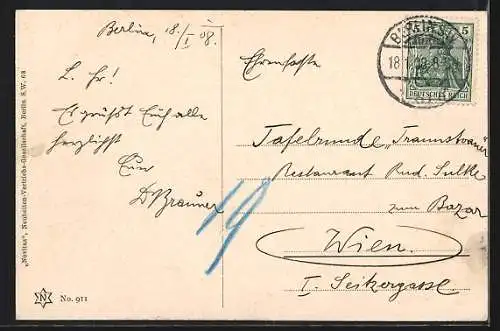 Berlin, 18./I 08.
L. Fr!
Es grüßt Euch alle
herzlichst
Euer
D Brauner
"Novitas", Neuheiten-Vertriebs-Gesellschaft, Berlin S.W. 68
N
No. 911
19
BERLIN S.W.
18.1.08.8
5
DEUTSCHES REICH
Ehrenfeste
Tafelrunde "Traunstrauner"
Restaurant Rud.
zum Bazar
Wien.
I. Seikergasse